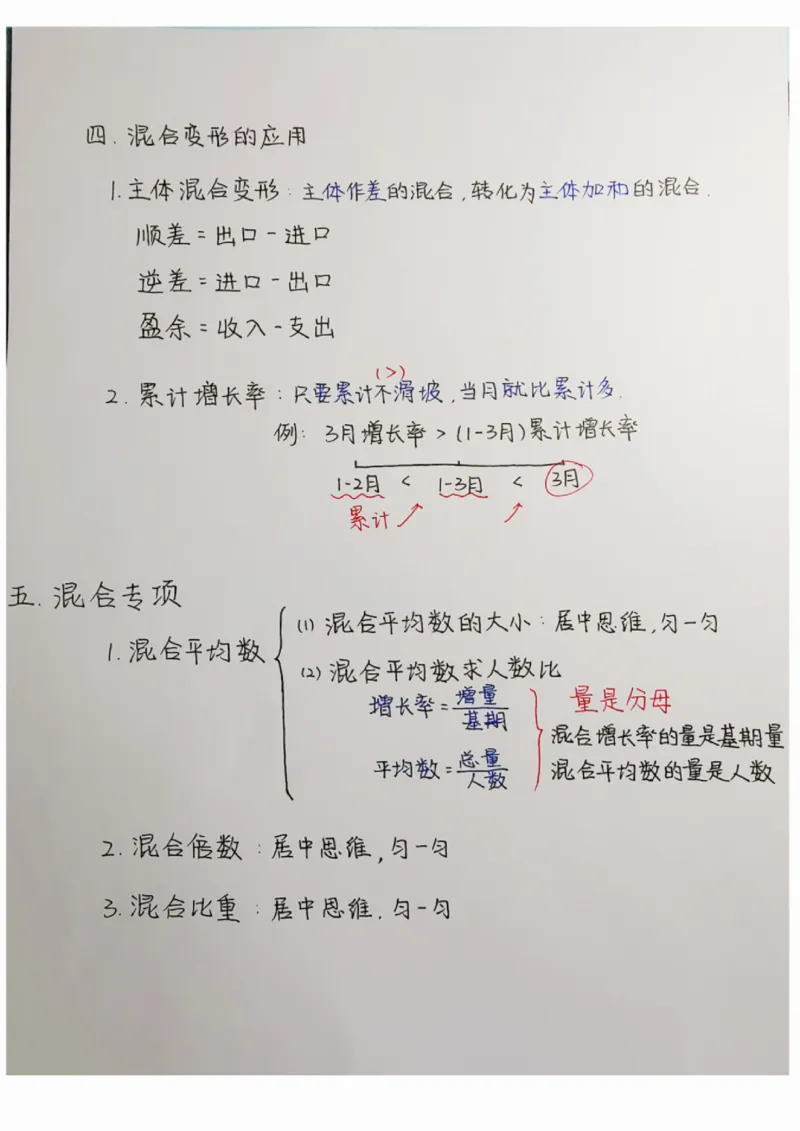 四. 混合变形的应用
1. 主体混合变形: 主体作差的混合, 转化为主体加和的混合.
顺差 = 出口 - 进口
逆差 = 进口 - 出口
盈余 = 收入 - 支出
(>)
2. 累计增长率: 只要累计不滑坡, 当月就比累计多.
例: 3月增长率 > (1-3月)累计增长率
1-2月 < 1-3月 < 3月
累计
五. 混合专项
1. 混合平均数
(1) 混合平均数的大小: 居中思维, 匀一匀
(2) 混合平均数求人数比
增长率 = 增量/基期
量是分母
混合增长率的量是基期量
平均数 = 总量/人数
混合平均数的量是人数
2. 混合倍数: 居中思维, 匀一匀
3. 混合比重: 居中思维. 匀一匀